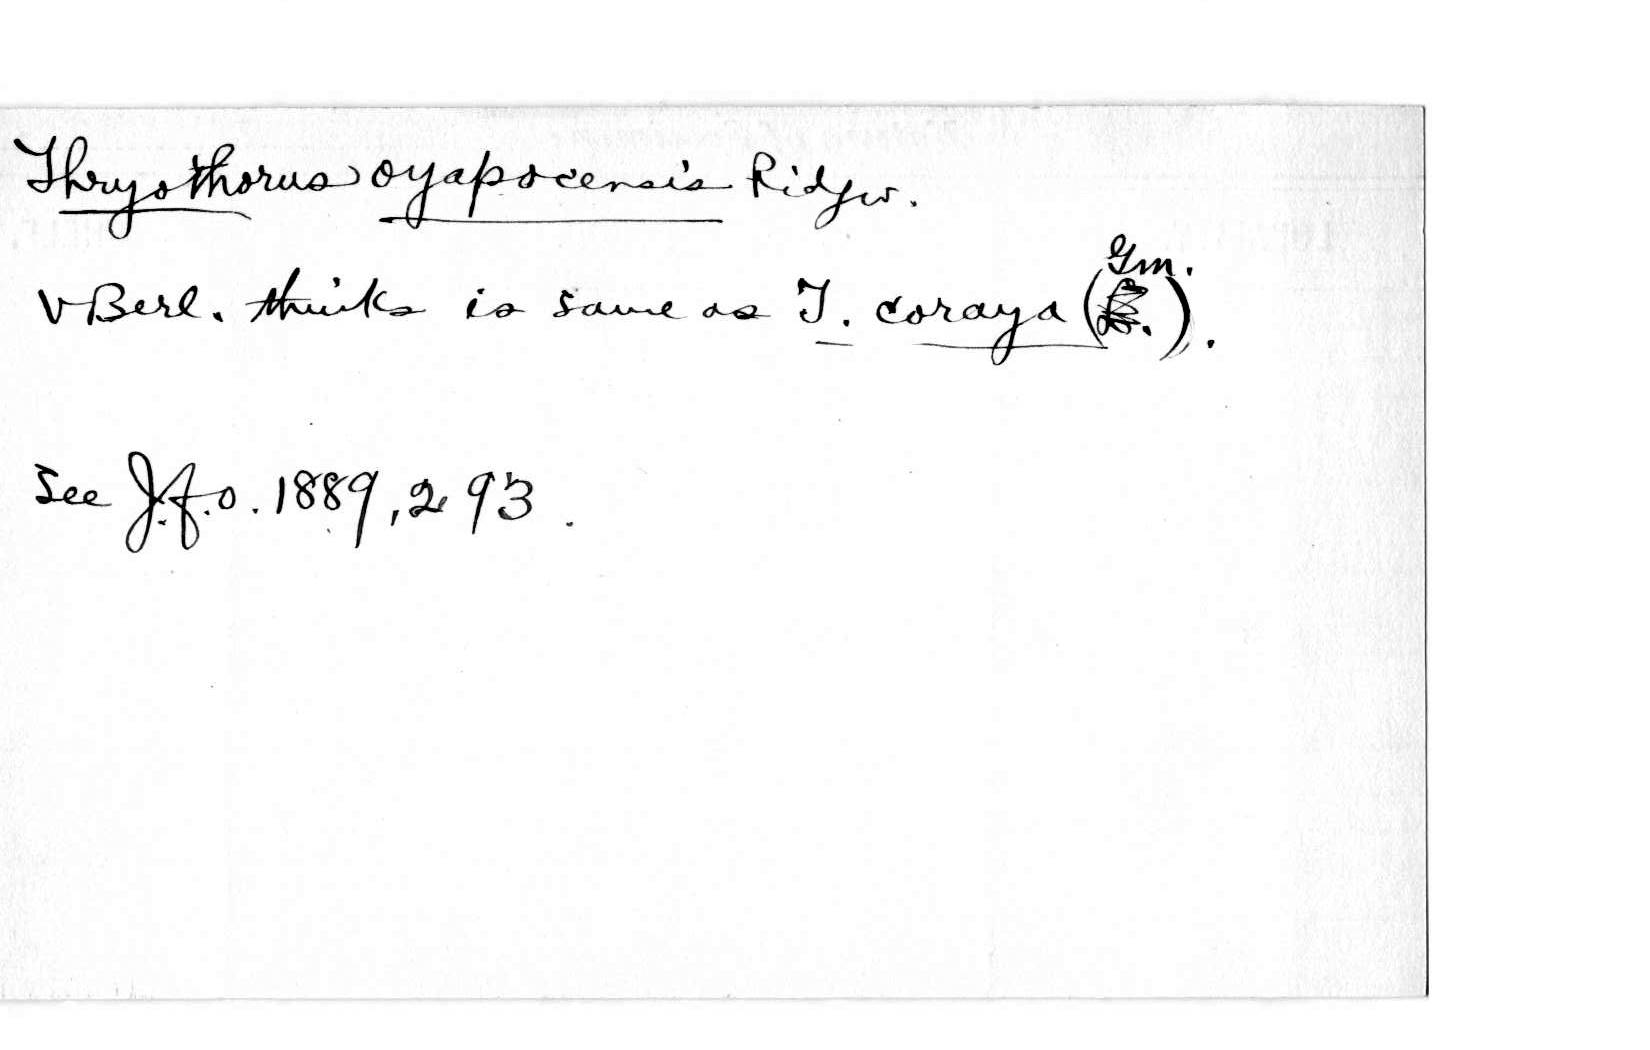 Thryothorus oyapocensis Ridgw.
v Berl. thinks is same as T. coraya (Gm.).
See J.f.O. 1889, 293.